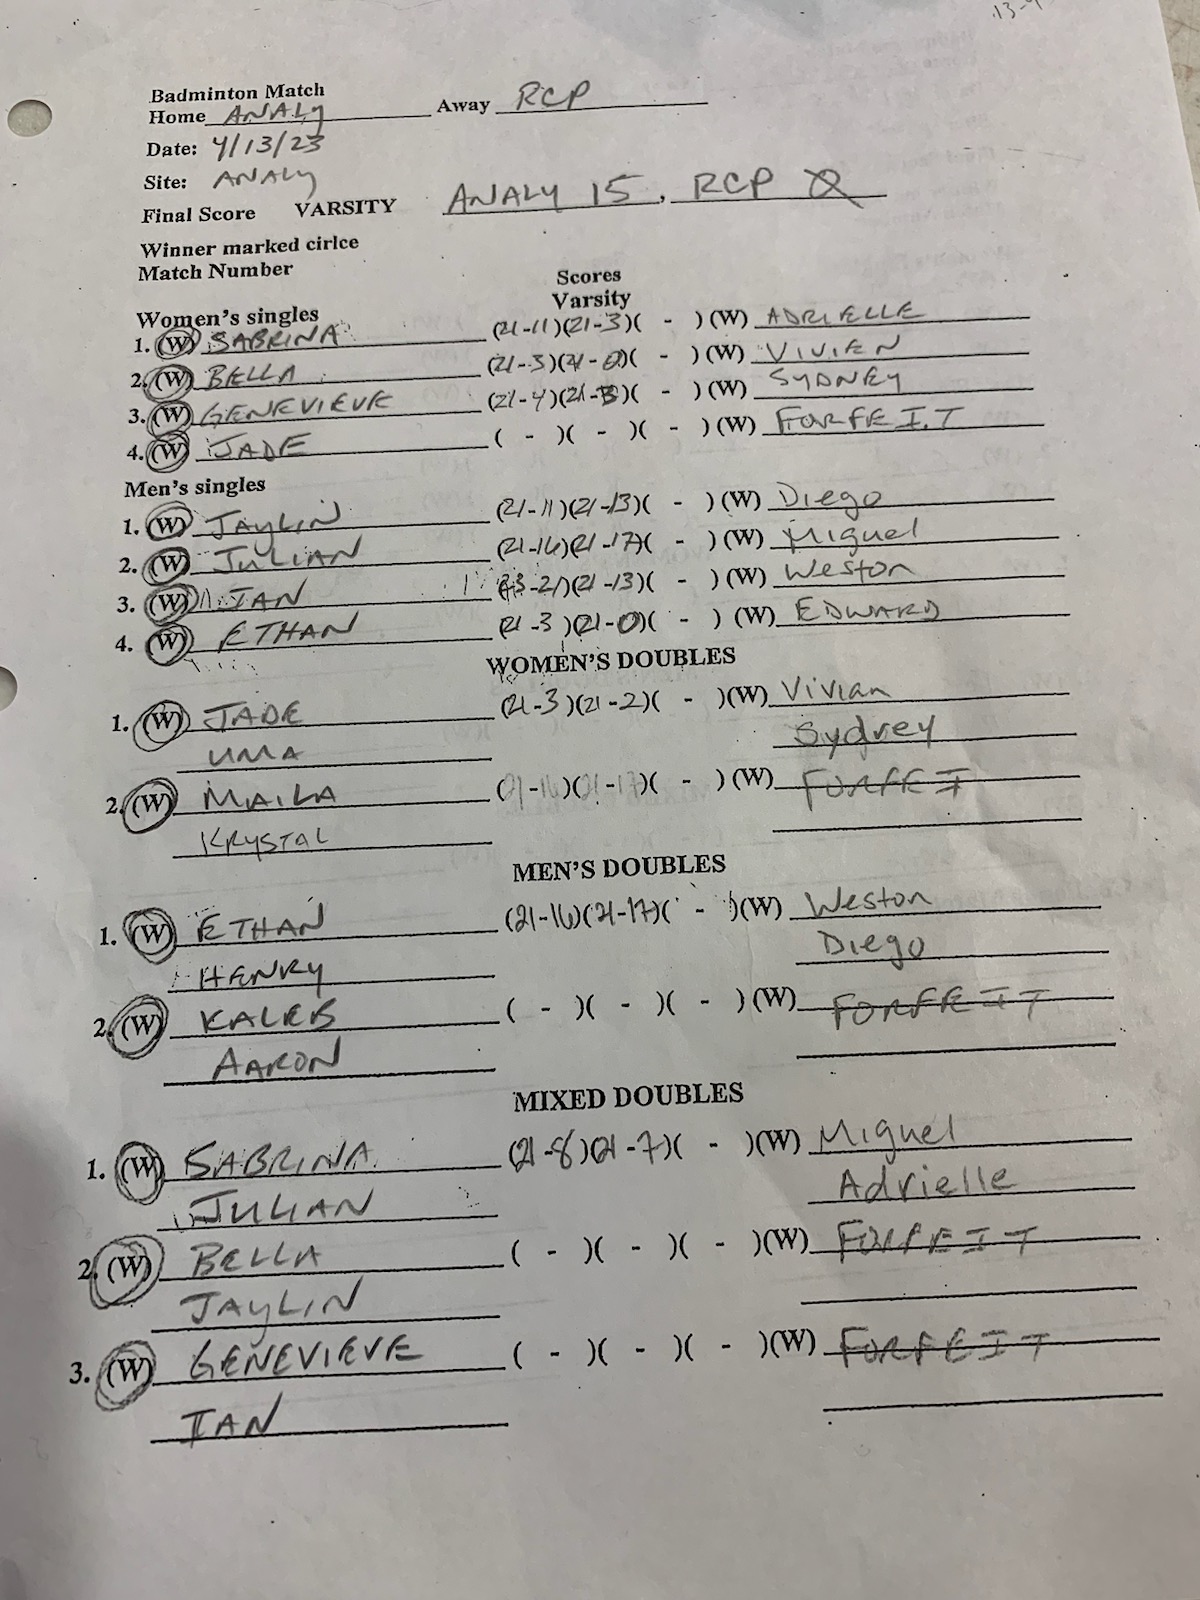 Badminton Match
Home ANALY Away RCP
Date: 4/13/23
Site: ANALY
Final Score VARSITY ANALY 15, RCP 0
Winner marked cirlce
Match Number
Scores
Varsity
Women's singles
1. (W) SABRINA (21-11)(21-3)( - )(W) ADRIELLE
2. (W) BELLA (21-3)(21-0)( - )(W) VIVIEN
3. (W) GENEVIEVE (21-4)(21- )( - )(W) SYDNEY
4. (W) JADE ( - )( - )( - )(W) FORFEIT
Men's singles
1. (W) JAYLIN (21-11)(21-13)( - )(W) Diego
2. (W) JULIAN (21-16)(21-17)( - )(W) Miguel
3. (W) IAN (23-21)(21-13)( - )(W) Weston
4. (W) ETHAN (21-3)(21-0)( - )(W) EDWARD
WOMEN'S DOUBLES
1. (W) JADE (21-3)(21-2)( - )(W) Vivian
UMA Sydney
2. (W) MAILA (21-16)(21-17)( - )(W) FORFEIT
KRYSTAL
MEN'S DOUBLES
1. (W) ETHAN (21-16)(21-17)( - )(W) Weston
HENRY Diego
2. (W) KALEB ( - )( - )( - )(W) FORFEIT
AARON
MIXED DOUBLES
1. (W) SABRINA (21-8)(21-7)( - )(W) Miguel
JULIAN Adrielle
2. (W) BELLA ( - )( - )( - )(W) FORFEIT
JAYLIN
3. (W) GENEVIEVE ( - )( - )( - )(W) FORFEIT
IAN